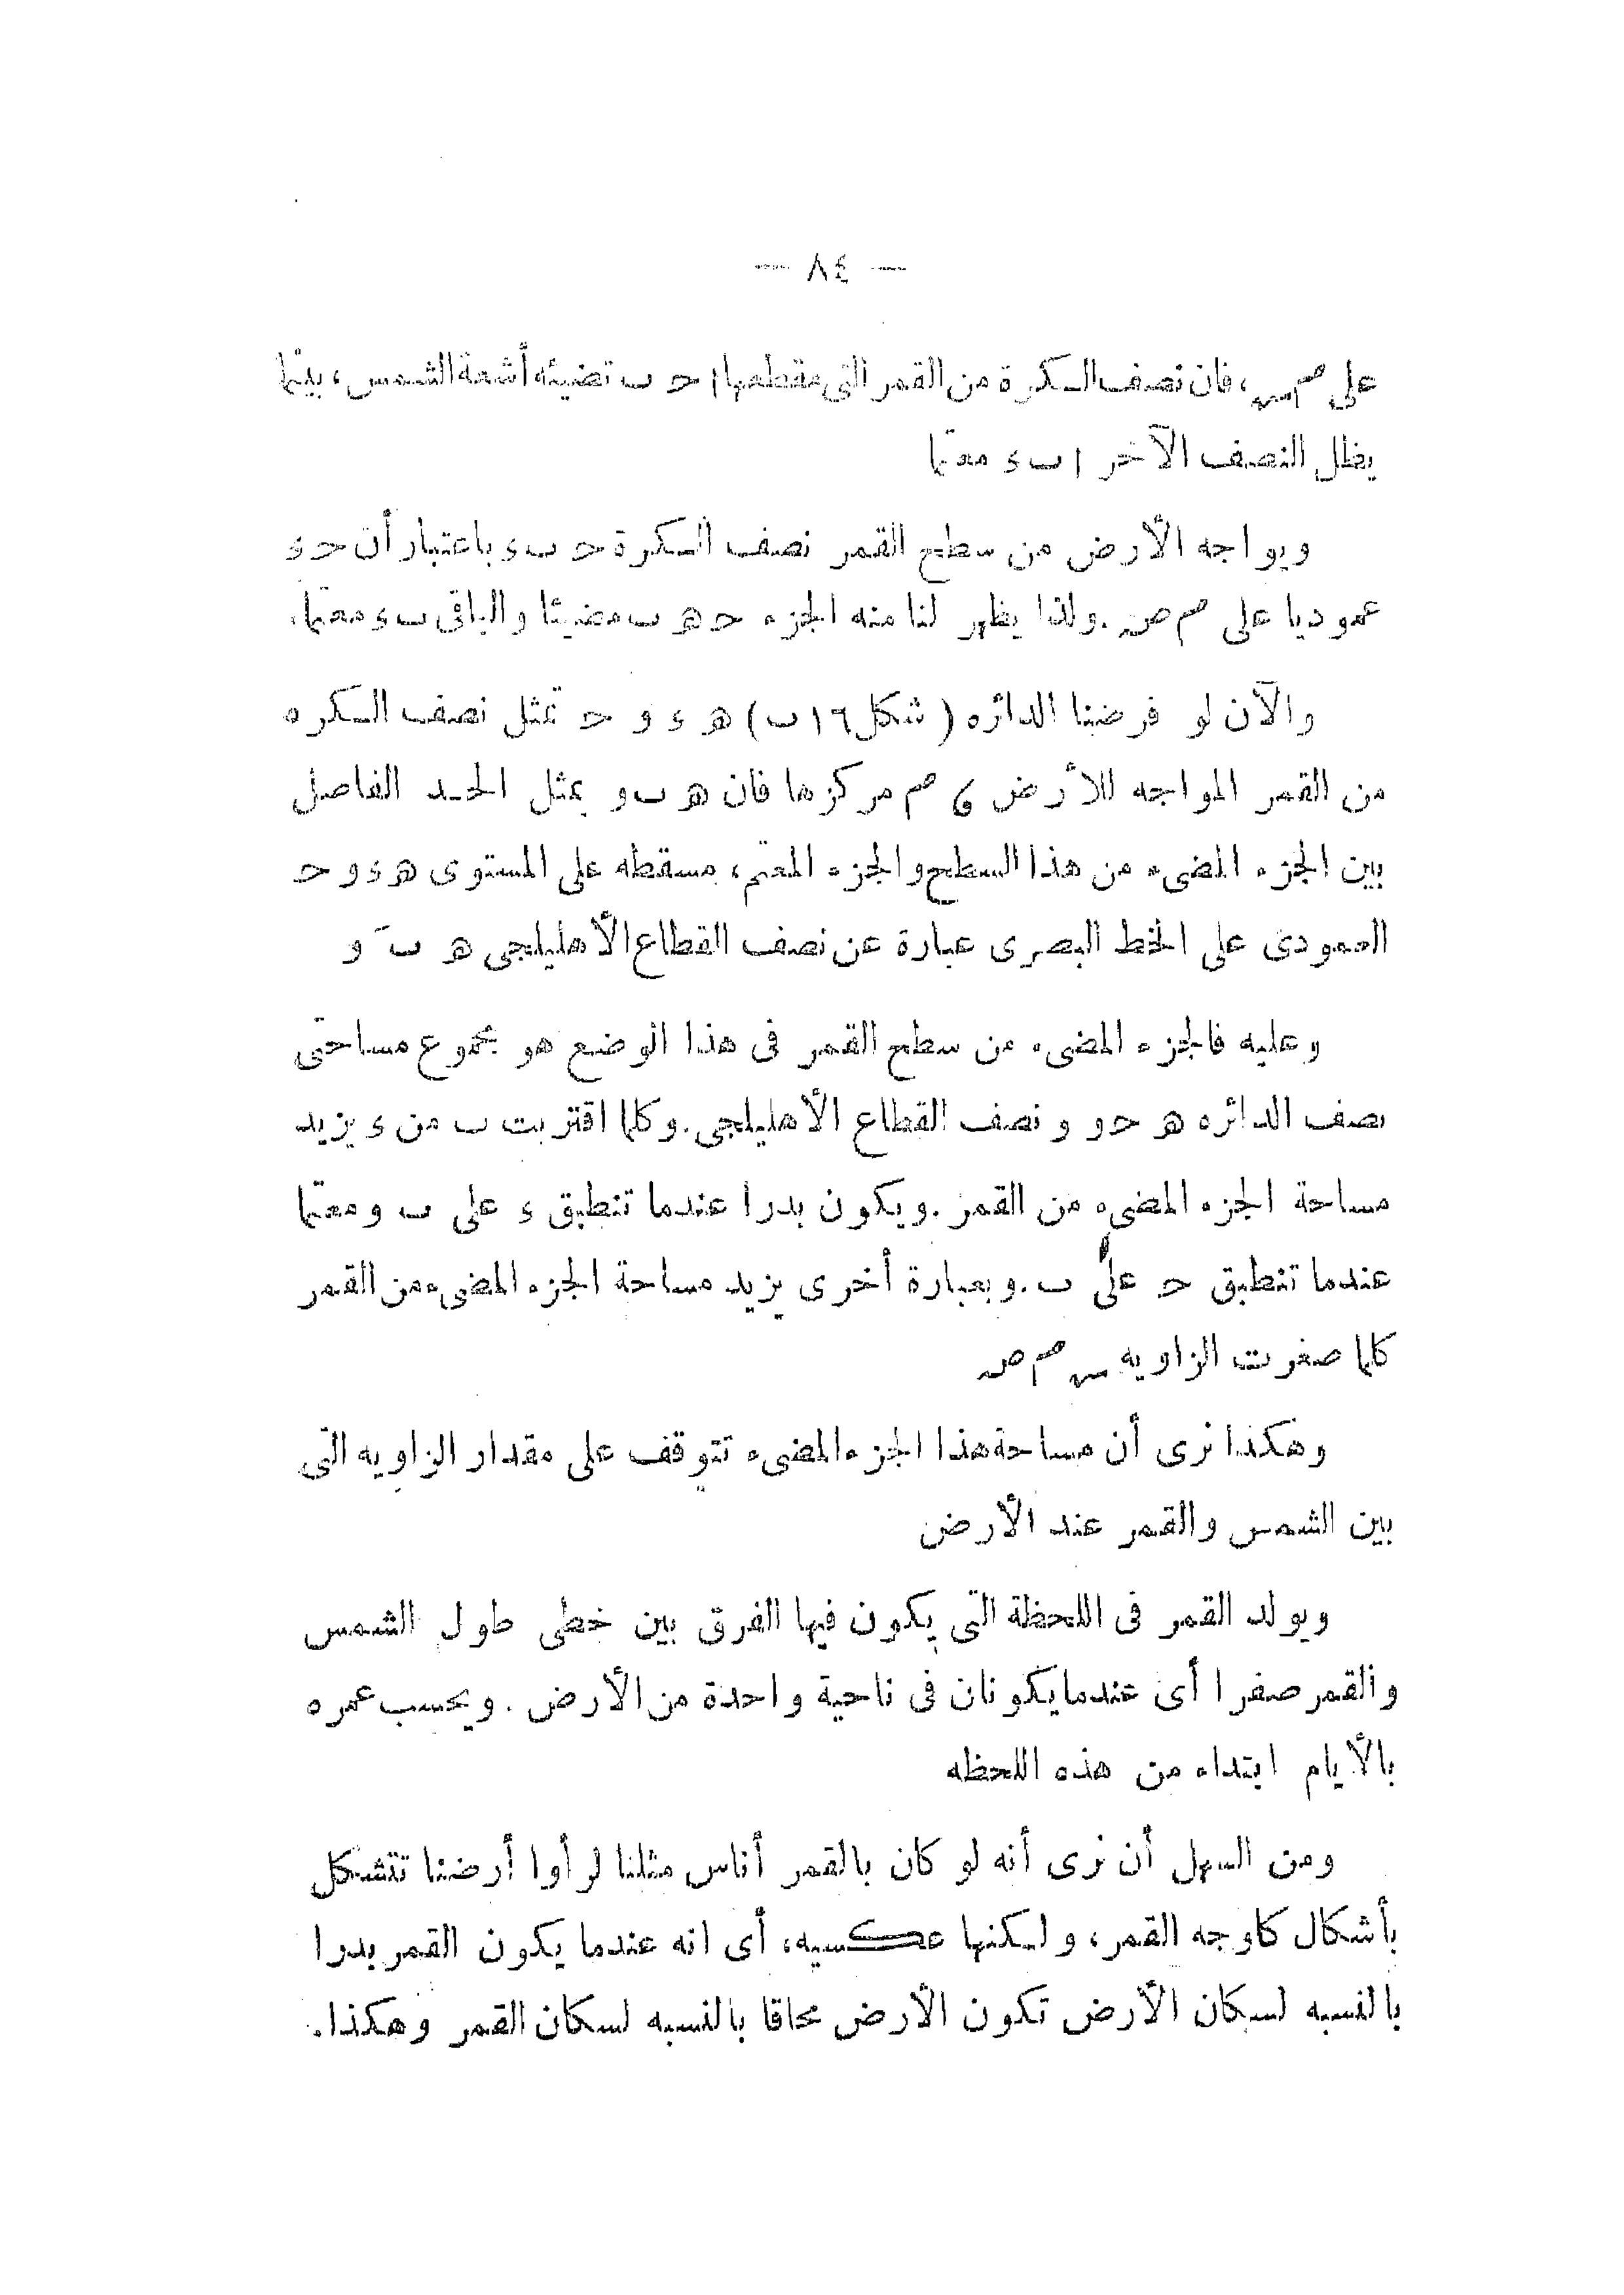 — ٨٤ —
على م س ، فان نصف الكرة من القمر التى مقطعها ا ح ب تضيئه أشعة الشمس ، بينما
يظل النصف الآخر ا ب ء معتما
ويواجه الأرض من سطح القمر نصف الكرة ح ب ء باعتبار أن ح ء
عموديا على م ص . ولذا يظهر لنا منه الجزء ح ه ب مضيئا والباقى ب ء معتما .
والآن لو فرضنا الدائره ( شكل ١٦ ب ) ه ء و ح تمثل نصف الكره
من القمر المواجه للأرض ، م مركزها فان ه ب و يمثل الحد الفاصل
بين الجزء المضىء من هذا السطح والجزء المعتم ، مسقطه على المستوى ه ء و ح
العمودى على الخط البصرى عبارة عن نصف القطاع الأهليلجى ه بَ و
وعليه فالجزء المضىء من سطح القمر فى هذا الوضع هو مجموع مساحتى
نصف الدائره ه ح و و نصف القطاع الأهليلجى . وكلما اقتربت ب من ء يزيد
مساحة الجزء المضىء من القمر . ويكون بدرا عندما تنطبق ء على ب ومعتما
عندما تنطبق ح على ب . وبعبارة أخرى يزيد مساحة الجزء المضىء من القمر
كلما صغرت الزاويه س م ص
وهكذا نرى أن مساحة هذا الجزء المضىء تتوقف على مقدار الزاويه التى
بين الشمس والقمر عند الأرض
ويولد القمر فى اللحظة التى يكون فيها الفرق بين خطى طول الشمس
والقمر صفرا أى عندما يكونان فى ناحية واحدة من الأرض . ويحسب عمره
بالأيام ابتداء من هذه اللحظه
ومن السهل أن نرى أنه لو كان بالقمر أناس مثلنا لرأوا أرضنا تتشكل
بأشكال كاوجه القمر ، ولكنها عكسيه ، أى انه عندما يكون القمر بدرا
بالنسبه لسكان الأرض تكون الأرض محاقا بالنسبه لسكان القمر وهكذا .